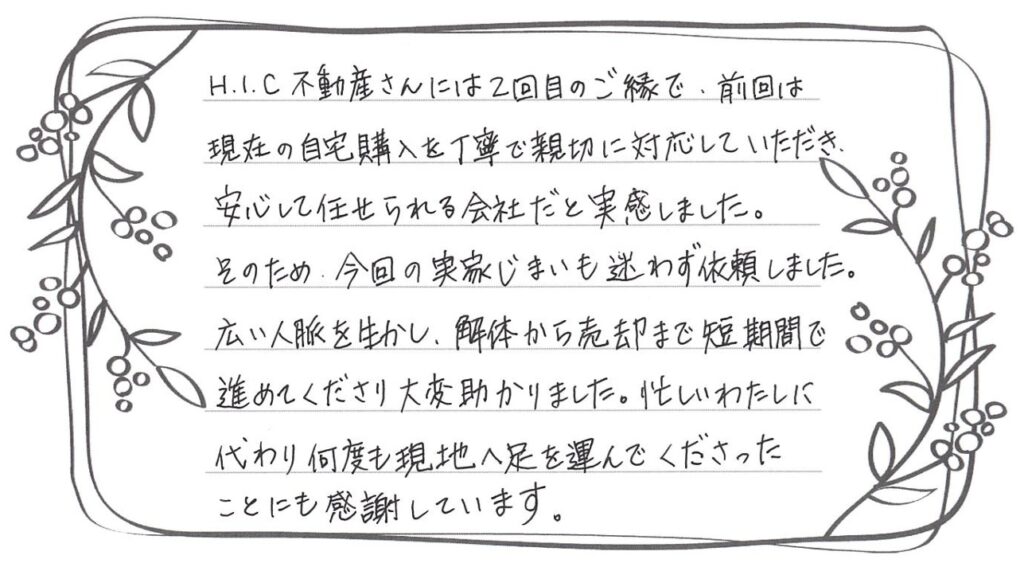 H.I.C不動産さんには2回目のご縁で、前回は
現在の自宅購入を丁寧で親切に対応していただき、
安心して任せられる会社だと実感しました。
そのため、今回の実家じまいも迷わず依頼しました。
広い人脈を生かし、解体から売却まで短期間で
進めてくださり大変助かりました。忙しいわたしに
代わり何度も現地へ足を運んでくださった
ことにも感謝しています。